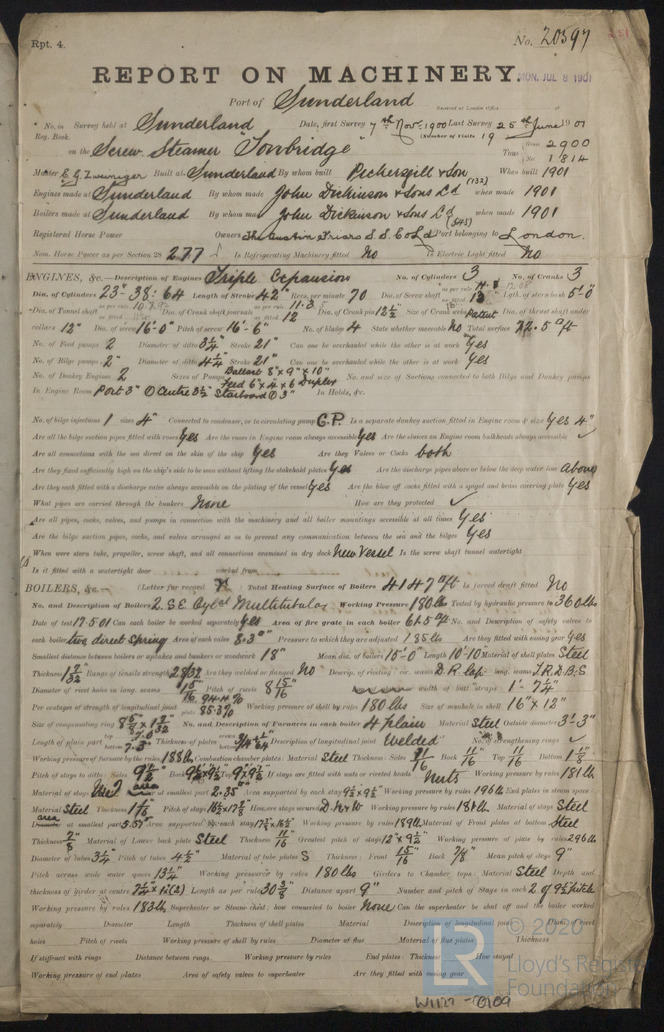 Rpt. 4.
No. 20597
REPORT ON MACHINERY.
MON. JUL 8 1901
Port of Sunderland
Received at London Office
No. in Survey held at Sunderland Date, first Survey 7th Nov. 1900 Last Survey 25th June 1901
Reg. Book. (Number of Visits 19
on the Screw Steamer Tonbridge Tons Gross 2900
Net 1814
Master Built at Sunderland By whom built Pickersgill & Son (132) When built 1901
Engines made at Sunderland By whom made John Dickinson & Sons Ld when made 1901
Boilers made at Sunderland By whom made John Dickinson & Sons Ld when made 1901
Registered Horse Power Owners The Austin Friars S.S. Co Ld Port belonging to London.
Nom. Horse Power as per Section 28 277 Is Refrigerating Machinery fitted No Is Electric Light fitted No
ENGINES, &c.—Description of Engines Triple Expansion No. of Cylinders 3 No. of Cranks 3
Dia. of Cylinders 23"-38"-64 Length of Stroke 42" Revs. per minute 70 Dia. of Screw shaft as per rule as fitted Lgth. of stern bush 5'-0"
Dia. of Tunnel shaft as per rule as fitted Dia. of Crank shaft journals as per rule 11.3 as fitted 12 Dia. of Crank pin 12½ Size of Crank webs Patent Dia. of thrust shaft under
collars 12" Dia. of screw 16'-0" Pitch of screw 16'-6" No. of blades 4 State whether moveable No Total surface 72.5 sq ft
No. of Feed pumps 2 Diameter of ditto 3¼" Stroke 21" Can one be overhauled while the other is at work Yes
No. of Bilge pumps 2" Diameter of ditto 4¼" Stroke 21" Can one be overhauled while the other is at work Yes
No. of Donkey Engines 2 Sizes of Pumps Ballast 8" x 9" x 10" Feed 6" x 4 x 6 Duplex No. and size of Suctions connected to both Bilge and Donkey pumps
In Engine Room Port 3" Centre 3½ Starboard 3" In Holds, &c.
No. of bilge injections 1 sizes 4" Connected to condenser, or to circulating pump C.P. Is a separate donkey suction fitted in Engine room & size Yes 4"
Are all the bilge suction pipes fitted with roses Yes Are the roses in Engine room always accessible Yes Are the sluices on Engine room bulkheads always accessible ✓
Are all connections with the sea direct on the skin of the ship Yes Are they Valves or Cocks both
Are they fixed sufficiently high on the ship's side to be seen without lifting the stokehold plates Yes Are the discharge pipes above or below the deep water line above
Are they each fitted with a discharge valve always accessible on the plating of the vessel Yes Are the blow off cocks fitted with a spigot and brass covering plate Yes
What pipes are carried through the bunkers None How are they protected ✓
Are all pipes, cocks, valves, and pumps in connection with the machinery and all boiler mountings accessible at all times Yes
Are the bilge suction pipes, cocks, and valves arranged so as to prevent any communication between the sea and the bilges Yes
When were stern tube, propeller, screw shaft, and all connections examined in dry dock New Vessel Is the screw shaft tunnel watertight
Is it fitted with a watertight door worked from
BOILERS, &c.— (Letter for record ) Total Heating Surface of Boilers 4147 sq ft Is forced draft fitted No
No. and Description of Boilers 2 S.E. Cyl Multitubular Working Pressure 180 lb Tested by hydraulic pressure to 360 lb
Date of test 17.5.01 Can each boiler be worked separately Yes Area of fire grate in each boiler 61.5 sq ft No. and Description of safety valves to
each boiler two direct Spring Area of each valve 8.3 Pressure to which they are adjusted 185 lb Are they fitted with easing gear Yes
Smallest distance between boilers or uptakes and bunkers or woodwork 18" Mean dia. of boilers 15'-0" Length 10'-10" Material of shell plates Steel
Thickness 1 7/32 Range of tensile strength 28/32 Are they welded or flanged No Descrip. of riveting: cir. seams D.R. lap long. seams T.R.D.B.S
Diameter of rivet holes in long. seams 1 5/16 Pitch of rivets 8 15/16 width of butt straps 1'-7¼"
Per centages of strength of longitudinal joint rivets 94.4% plate 85.3% Working pressure of shell by rules 180 lbs Size of manhole in shell 16" x 12"
Size of compensating ring No. and Description of Furnaces in each boiler 4 plain Material Steel Outside diameter 3'-3"
Length of plain part top bottom 7.3" Thickness of plates crown bottom Description of longitudinal joint Welded No. of strengthening rings ✓
Working pressure of furnace by the rules 188 lb Combustion chamber plates: Material Steel Thickness: Sides 11/16 Back 11/16 Top 11/16 Bottom 1 1/8"
Pitch of stays to ditto: Sides 9½ Back 9½ x 9½ Top 9 x 9½ If stays are fitted with nuts or riveted heads Nuts Working pressure by rules 181 lb
Material of stays Steel area at smallest part 2.35 Area supported by each stay 9½ x 9½ Working pressure by rules 196 lb End plates in steam space
Material Steel Thickness 1 1/16 Pitch of stays 16½ x 17½ How are stays secured D.N & W Working pressure by rules 181 lb Material of stays Steel
area at smallest part Area supported by each stay 17½ x 16½ Working pressure by rules 189 lb Material of Front plates at bottom Steel
Thickness 7/8" Material of Lower back plate Steel Thickness 11/16 Greatest pitch of stays 12" x 9½" Working pressure of plate by rules 296 lb
Diameter of tubes 3¼ Pitch of tubes 4½" Material of tube plates S Thickness: Front 15/16 Back 7/8" Mean pitch of stays 9"
Pitch across wide water spaces 13¼" Working pressure by rules 180 lbs Girders to Chamber tops: Material Steel Depth and
thickness of girder at centre 7¾ x 1½ (2) Length as per rule 30 3/8 Distance apart 9" Number and pitch of Stays in each 2 of 9½ pitch
Working pressure by rules 183 lb Superheater or Steam chest; how connected to boiler None Can the superheater be shut off and the boiler worked
separately Diameter Length Thickness of shell plates Material Description of longitudinal joint Diam. of rivet
holes Pitch of rivets Working pressure of shell by rules Diameter of flue Material of flue plates Thickness
If stiffened with rings Distance between rings Working pressure by rules End plates: Thickness How stayed
Working pressure of end plates Area of safety valves to superheater Are they fitted with easing gear
© 2020
Lloyd's Register
Foundation
W1127-0109